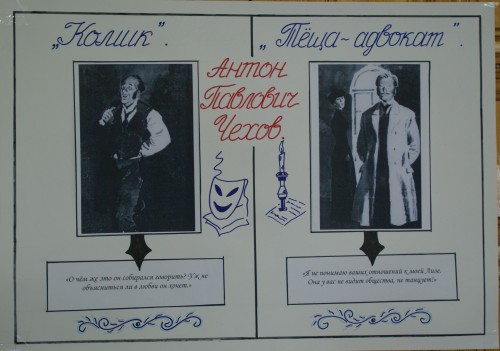 „Комик".
„Тёща-адвокат".
Антон
Павлович
Чехов.
«О чём же это он собирался говорить? Уж не
объясниться ли в любви он хочет.»
«Я не понимаю ваших отношений к моей Лизе.
Она у вас не видит общества, не танцует!»